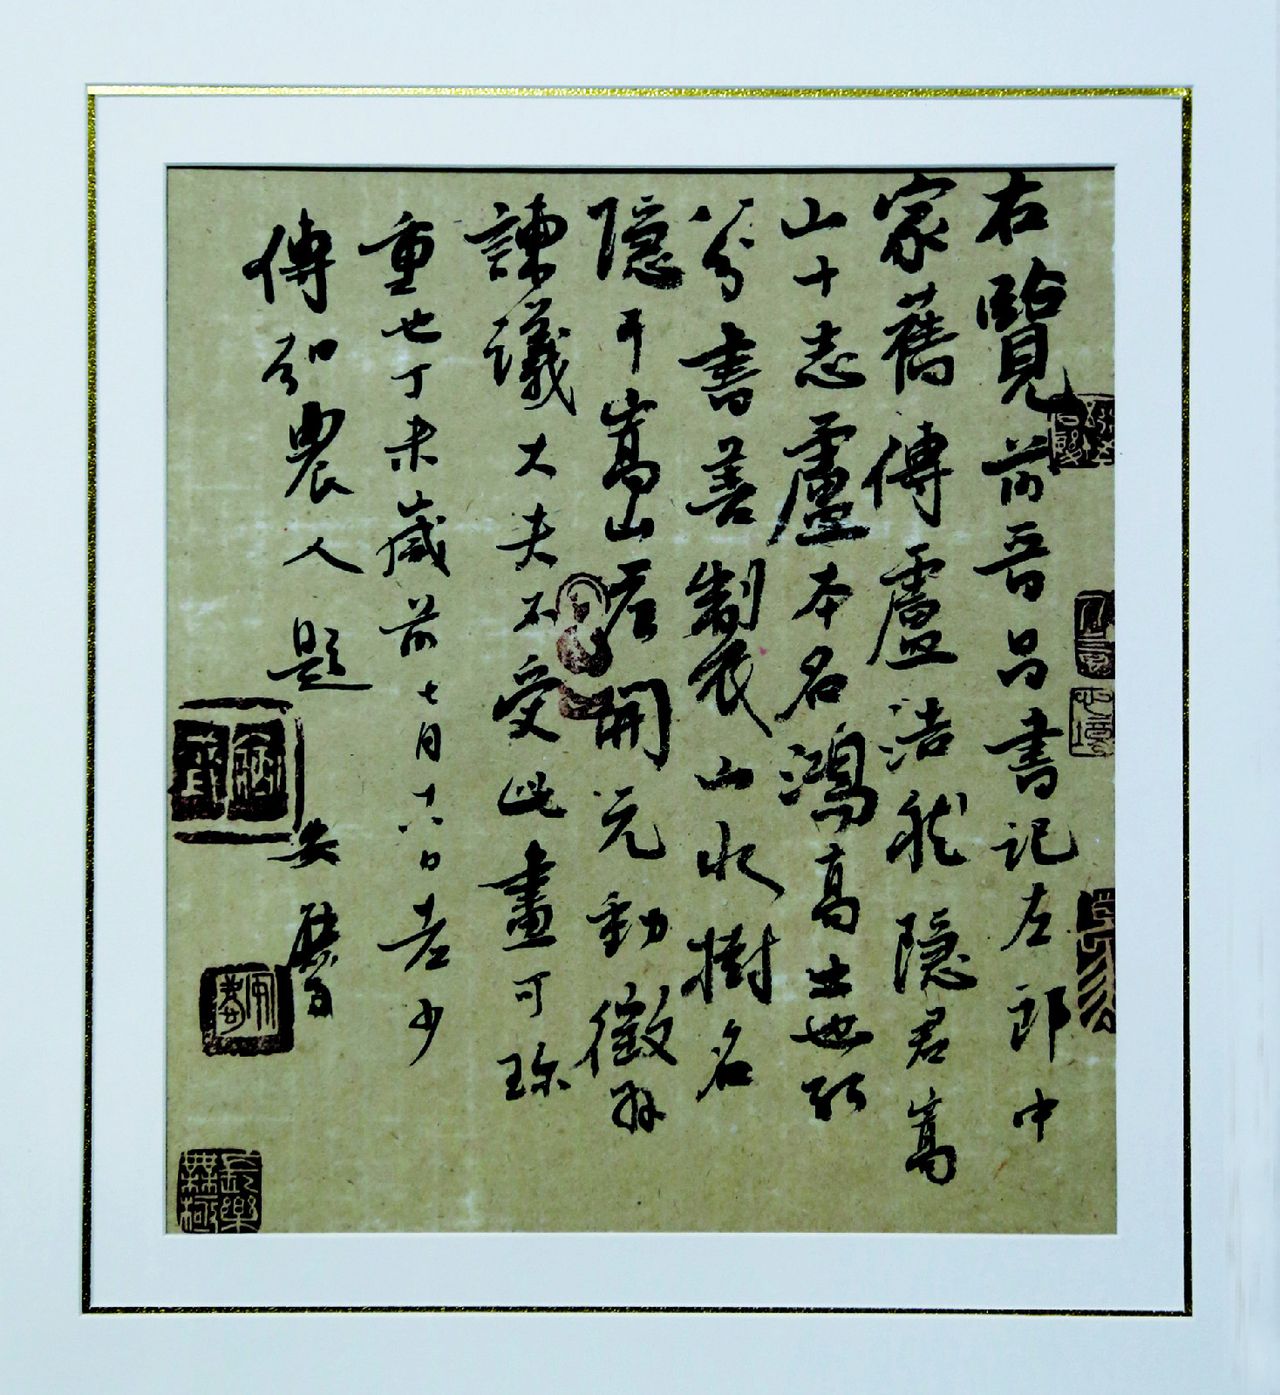 右覽前晉昌書記左郎中
家舊傳盧浩然隱君嵩
山十志盧本名鴻高士也能
八分書善製山水樹名
隱于嵩山唐開元初徵拜
諫議大夫不受此畫可珍
重也丁未歲前七月十八日老少
傅弘農人題
長樂無極